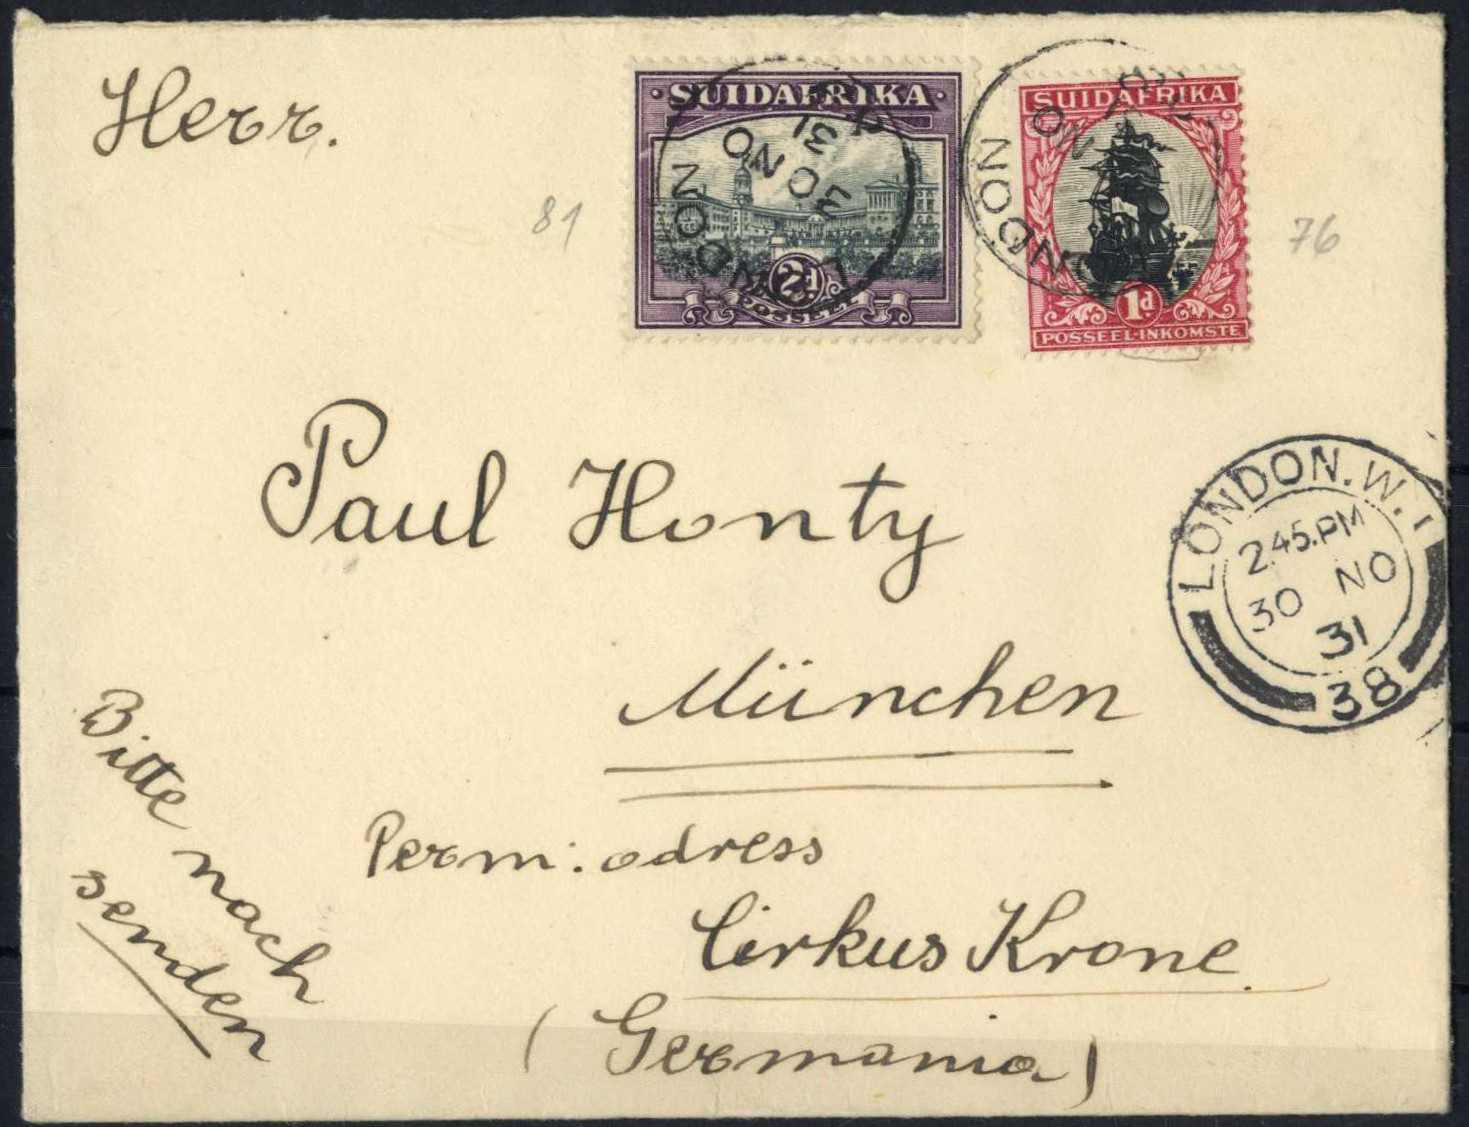 Herr.
SUIDAFRIKA
2d
POSSEEL
LONDON
30 NO
31
SUIDAFRIKA
1d
POSSEEL-INKOMSTE
LONDON
NO
81
76
Paul Honty
LONDON.W.1
2.45.PM
30 NO
31
38
München
Bitte nach
senden
Perm: adress
Cirkus Krone
(Germania)